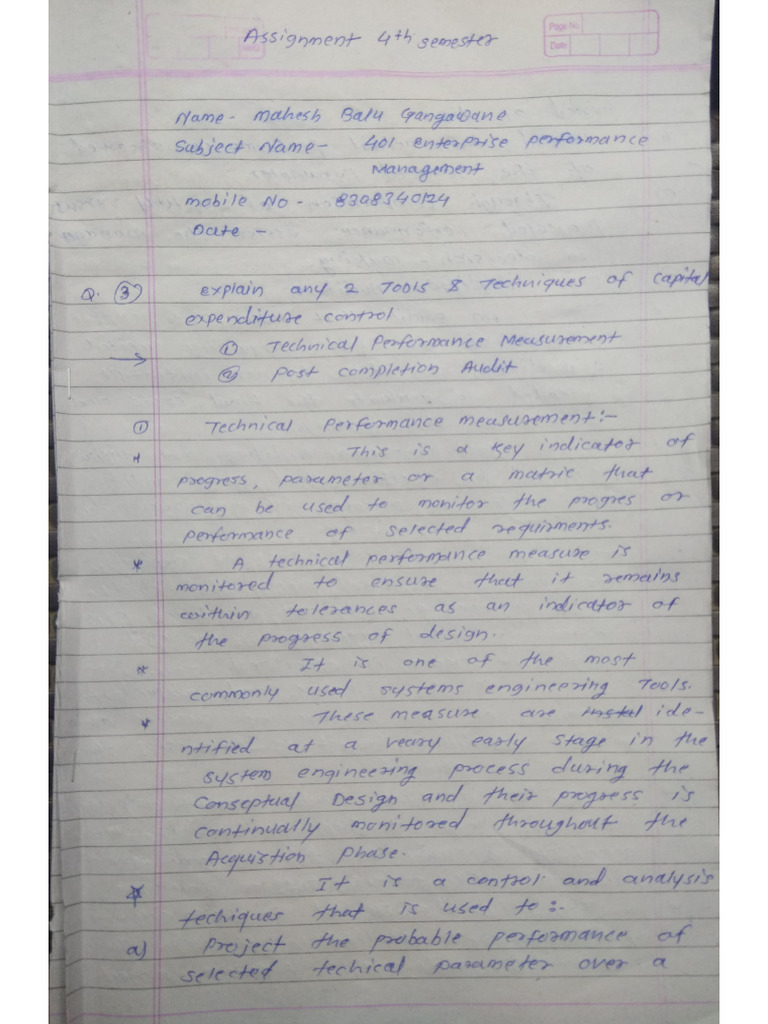 Assignment 4th semester
Page No.
Date
Name - Mahesh Balu Gangawane
Subject Name - 401 enterprise performance
Management
mobile No - 8398340124
Date -
Q. 3 explain any 2 Tools & Techniques of capital
expenditure control
→ ① Technical Performance Measurement
② Post completion Audit
① Technical Performance measurement:-
* This is a key indicator of
progress, parameter or a matric that
can be used to monitor the progres or
performance of selected requirments.
* A technical performance measure is
monitored to ensure that it remains
within tolerances as an indicator of
the progress of design.
* It is one of the most
commonly used systems engineering Tools.
* These measure are ide-
ntified at a veary early stage in the
system engineering process during the
Conseptual Design and their progress is
continually monitored throughout the
Acquistion phase.
* It is a control and analysis
techiques that is used to:-
a) Project the probable performance of
selected techical parameter over a